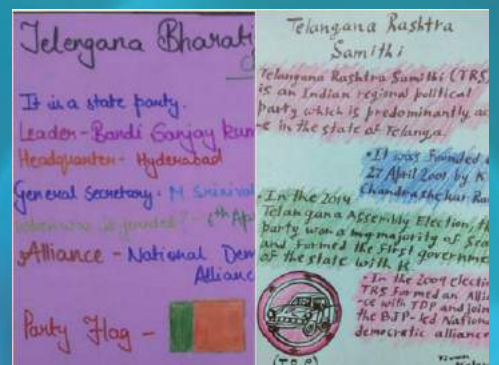 Telengana Bharati
It is a state party.
Leader - Bandi Sanjay Kum
Headquarter - Hyderabad
General Secretary - M Sriniva
founded? - 6th Ap
Alliance - National Dem
Alliance
Party Flag -
Telangana Rashtra
Samithi
Telangana Rashtra Samithi (TRS)
is an Indian regional political
party which is predominantly ac
-e in the state of Telanga.
• It was Founded
27 April 2001 by K
Chandrashekar Rao
• In the 2014
Telangana Assembly Election, th
party won a majority of Sea
and formed the First governme
of the state with K.
• In the 2009 electi
TRS Formed an Allia
-ce with TDP and join
the BJP-led Nation
democratic alliance
(T.R.S)